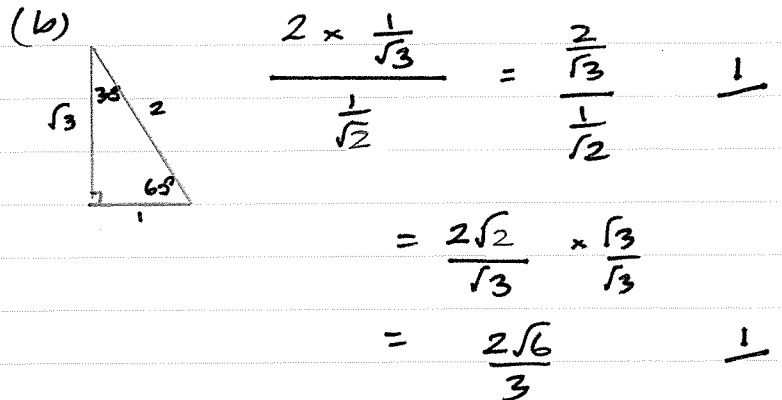 (b)
√3 30° 2
60°
1
2 × 1/√3 / 1/√2 = 2/√3 / 1/√2 1
= 2√2/√3 × √3/√3
= 2√6/3 1